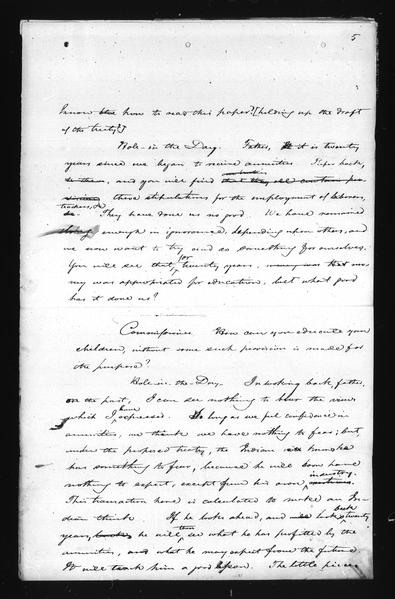 5
know how to read this paper? [holding up the draft
of the treaty?]
Hole-in-the Day. Father, it is twenty
years since we began to receive annuities. Refer back,
and you will find
these stipulations for the employment of laborers,
teachers, &c. They have done us no good. We have remained
enough in ignorance, depending upon others, and
we now want to try and do something for ourselves.
You will see that, for twenty years, money was
appropriated for education, but what good
has it done us?
Commissioner. How can you educate your
children, without some such provision is made for
the purpose?
Hole-in-the-Day. In looking back, father,
on the past, I can see nothing to blur the views
which I have expressed. So long as we put confidence in
annuities, we think we have nothing to fear; but,
under the proposed treaty, the Indian
has something to fear, because he will soon have
nothing to expect, except from his own industry.
This transaction here is calculated to make an In-
dian think. If he looks ahead, and look back twenty
years, he will then see what he has profited by the
annuities, and what he may expect from the future.
It will teach him a good lesson. The little piece